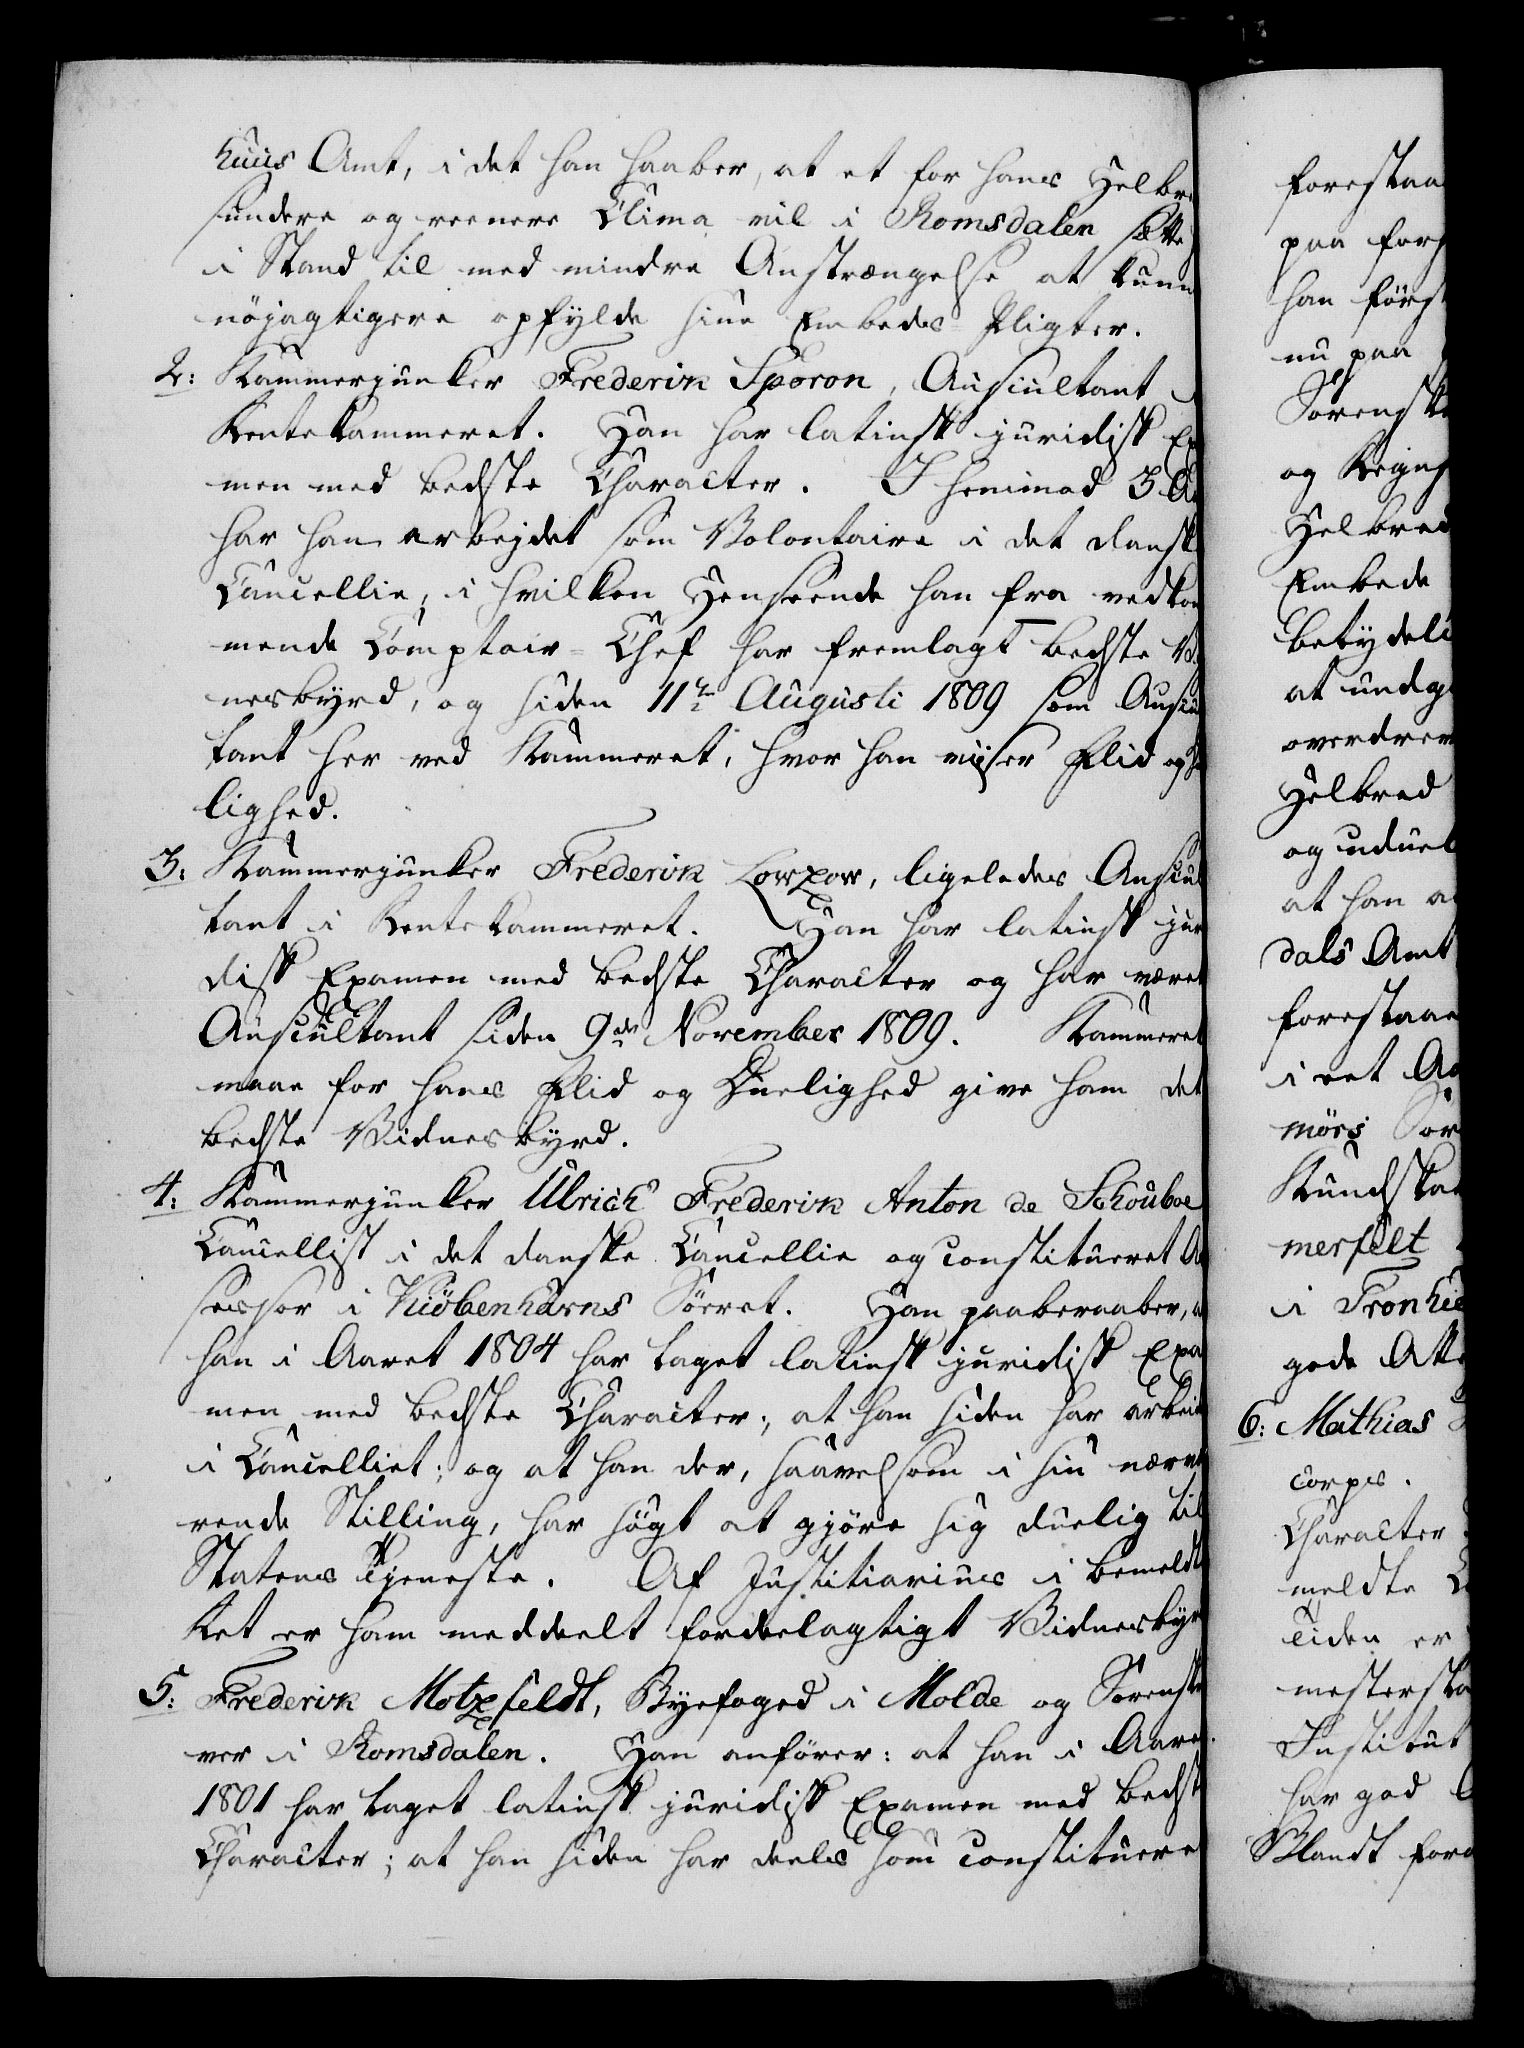 huus Amt, i det han haaber, at et for hans Helbre
sundere og reenere Clima vil i Romsdalen sætte
i Stand til med mindre Anstrængelse at kunn
nöjagtigere opfylde sine Embeds-Pligter.
2: Kammerjunker Frederik Sporon, Auscultant i
Rentekammeret. Han har latinsk juridisk Ex
men med bedste Character. I henimod 3 A
har han arbejdet som Volontaire i det danske
Cancellie, i hvilken Henseende han fra vedkom
mende Comptoir-Chef har fremlagt bedste V
nesbyrd, og siden 11te Augusti 1809 som Auscul
tant her ved Kammeret, hvor han viiser Flid og
lighed.
3: Kammerjunker Frederik Lowzow, ligeledes Auscul
tant i Rentekammeret. Han har latinsk juri
disk Examen med bedste Character og har været
Auscultant siden 9de November 1809. Kammeret
maae for hans Flid og Duelighed give ham det
bedste Vidnesbyrd.
4: Kammerjunker Ulrich Frederik Anton de Schouboe
Cancellist i det danske Cancellie og constitueret A
sessor i Kiöbenhavns Söeret. Han paaberaaber, a
han i Aaret 1804 har taget latinsk juridisk Exa
men med bedste Character; at han siden har arbeid
i Cancelliet; og at han der, saavelsom i sin nærvæ
rende Stilling, har sögt at gjöre sig duelig til
Statens Tjeneste. Af Justitiarius i bemeldte
Ret er ham meddeelt fordeelagtigt Vidnesbyr
5: Frederik Motzfeldt, Byefoged i Molde og Sorenskri
ver i Romsdalen. Han anförer: at han i Aare
1801 har taget latinsk juridisk Examen med bedst
Character; at han siden har deels som constituere
forestaa
paa fors
han först
nu paa
Sorensk
og Regns
Helbred
Embede
betydeli
at undg
overdrev
Helbred
og uduel
at han a
dals Amt
forestaae
i eet Aa
mörs Sor
Kundska
merfelt
i Tronhie
gode Atte
6: Mathias
corps.
Character
meldte
Tiden er
mesterska
Institut
har god
Blandt fora